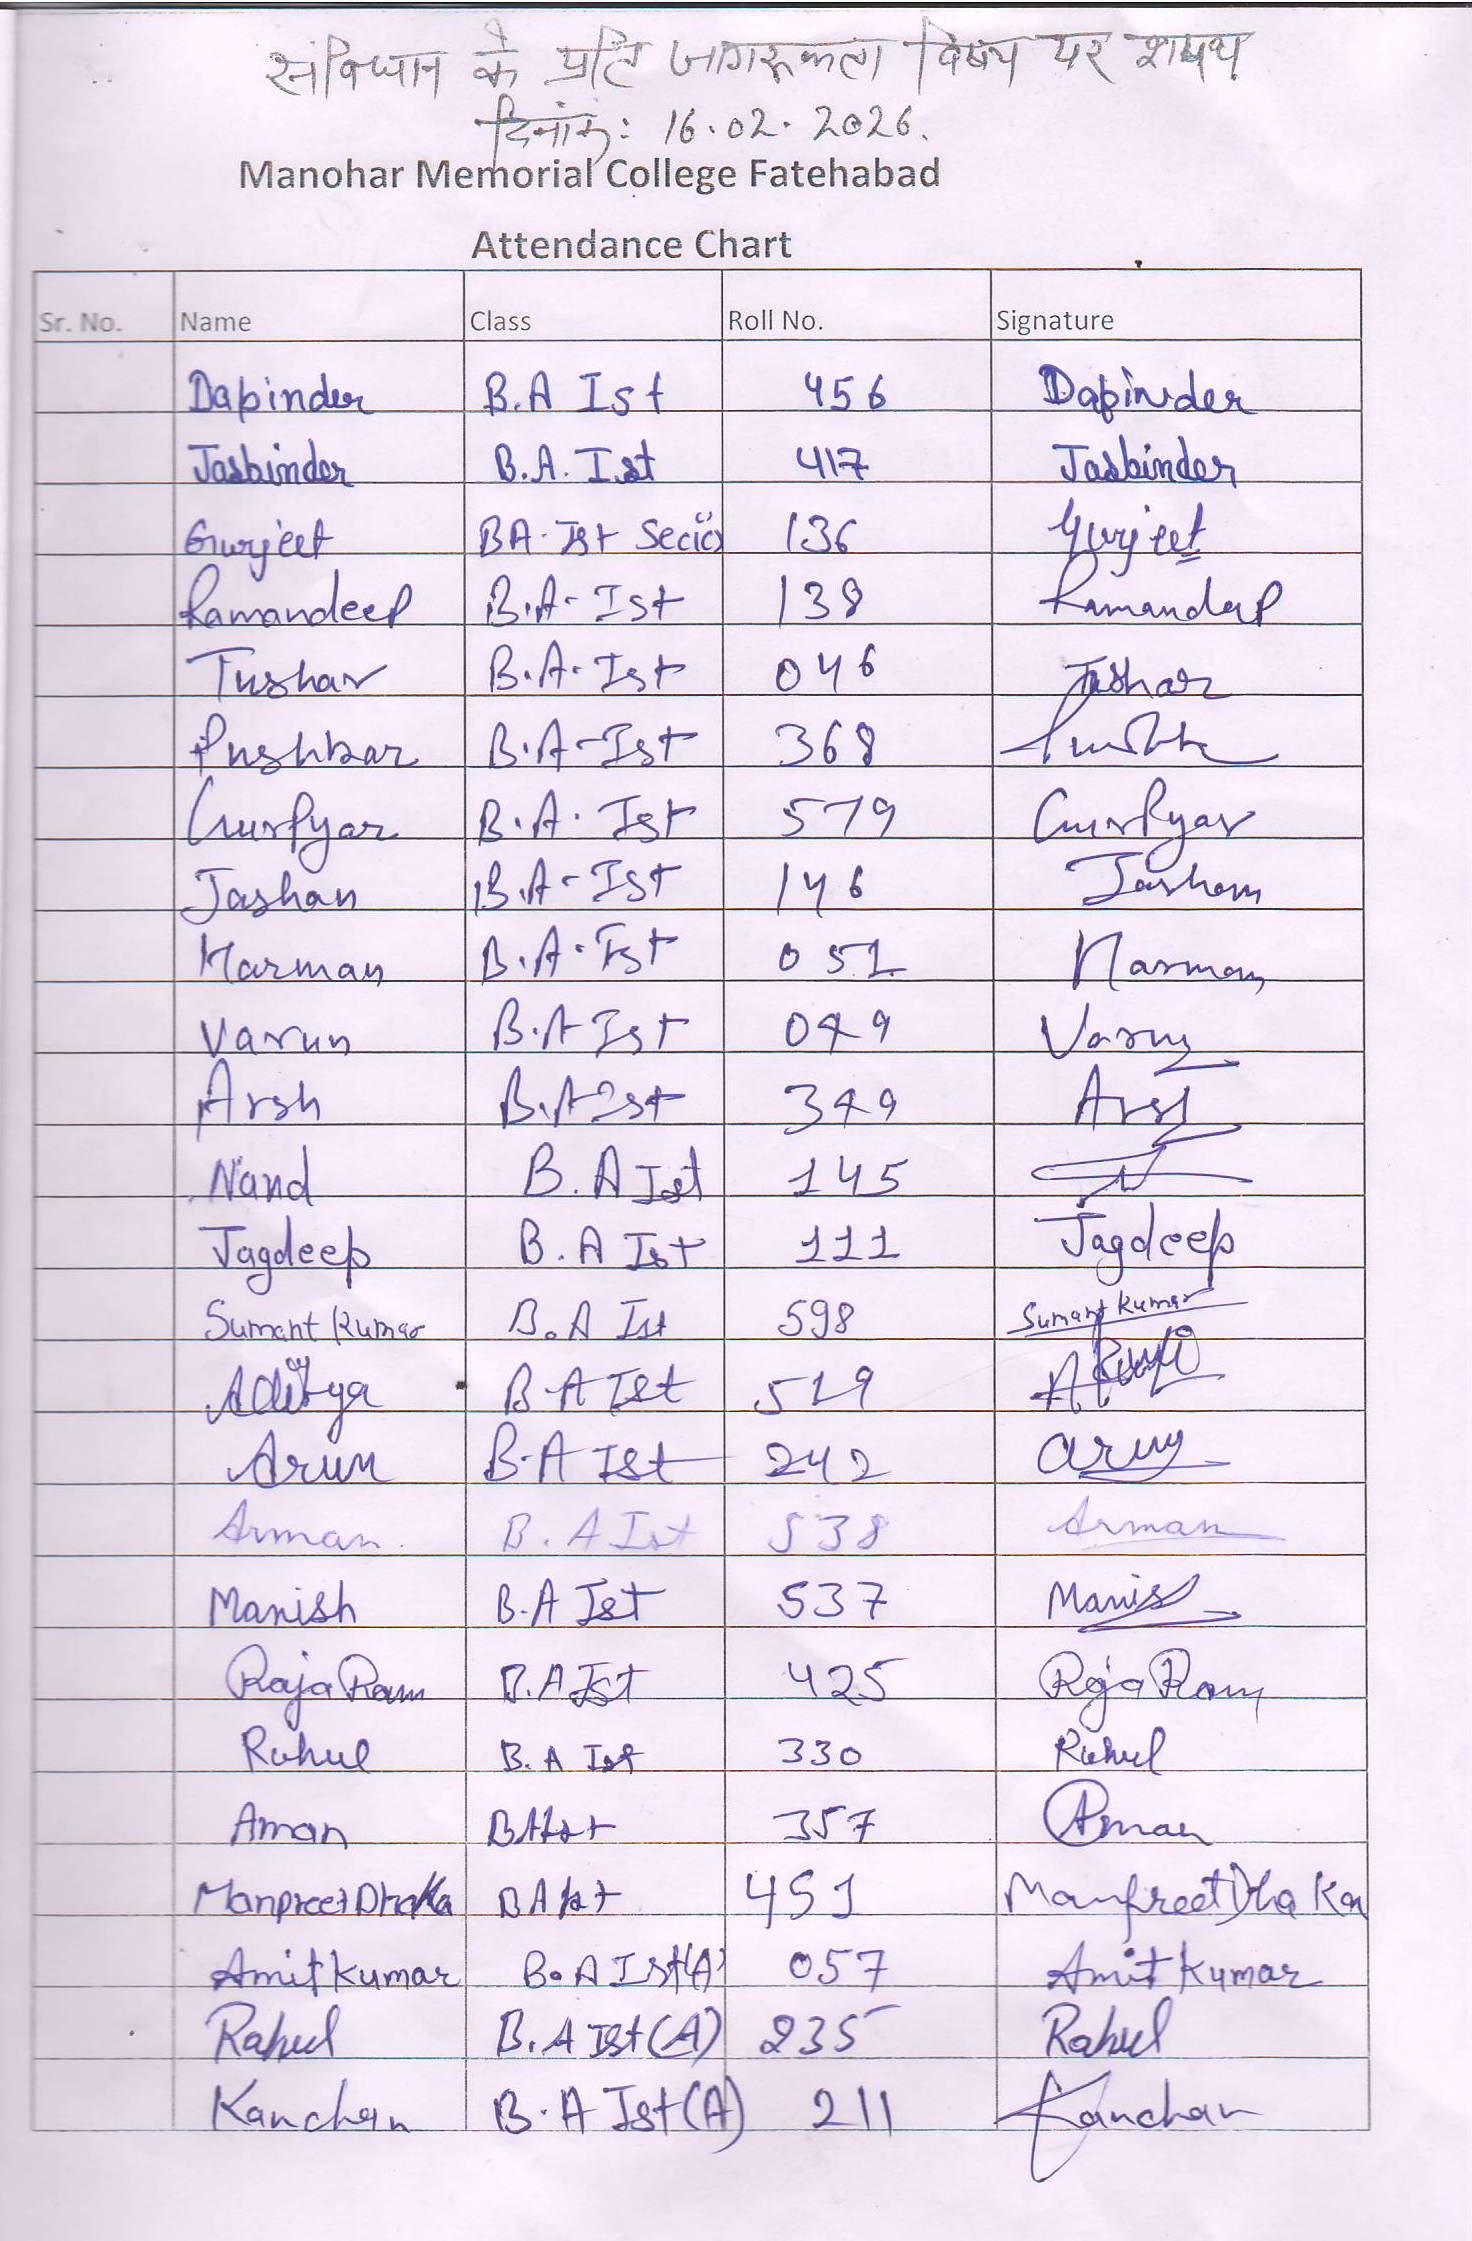 संविधान के प्रति जागरूकता विषय पर शपथ
दिनांक: 16.02.2026.
Manohar Memorial College Fatehabad
Attendance Chart
Sr. No. Name Class Roll No. Signature
Dapinder B.A Ist 456 Dapinder
Jasbinder B.A. Ist 417 Jasbinder
Gurjeet BA. Ist 136 Gurjeet
Ramandeep B.A- Ist 138 Ramandeep
Tushar B.A. Ist 046 Tushar
Pushkar B.A-Ist 368
Gurpyar B.A. Ist 579 Gurpyar
Jashan B.A- Ist 146 Jashan
Harman B.A. Ist 051 Harman
Varun B.A Ist 049 Varun
Arsh B.A Ist 349 Arsh
Nand B.A Ist 145
Jagdeep B.A Ist 111 Jagdeep
Sumant Kumar B.A Ist 598 Sumant Kumar
Aditya B.A Ist 519
Arun B.A Ist 242 Arun
Arman. B.A Ist 538 Arman
Manish B.A Ist 537 Manish
Raja Ram B.A Ist 425 Raja Ram
Rahul B.A Ist 330 Rahul
Aman BA Ist 357 Aman
Manpreet Dhaka BA Ist 451 Manpreet Dhaka
Amit kumar B.A Ist (A) 057 Amit kumar
Rahul B.A Ist (A) 235 Rahul
Kanchan B.A Ist (A) 211 Kanchan